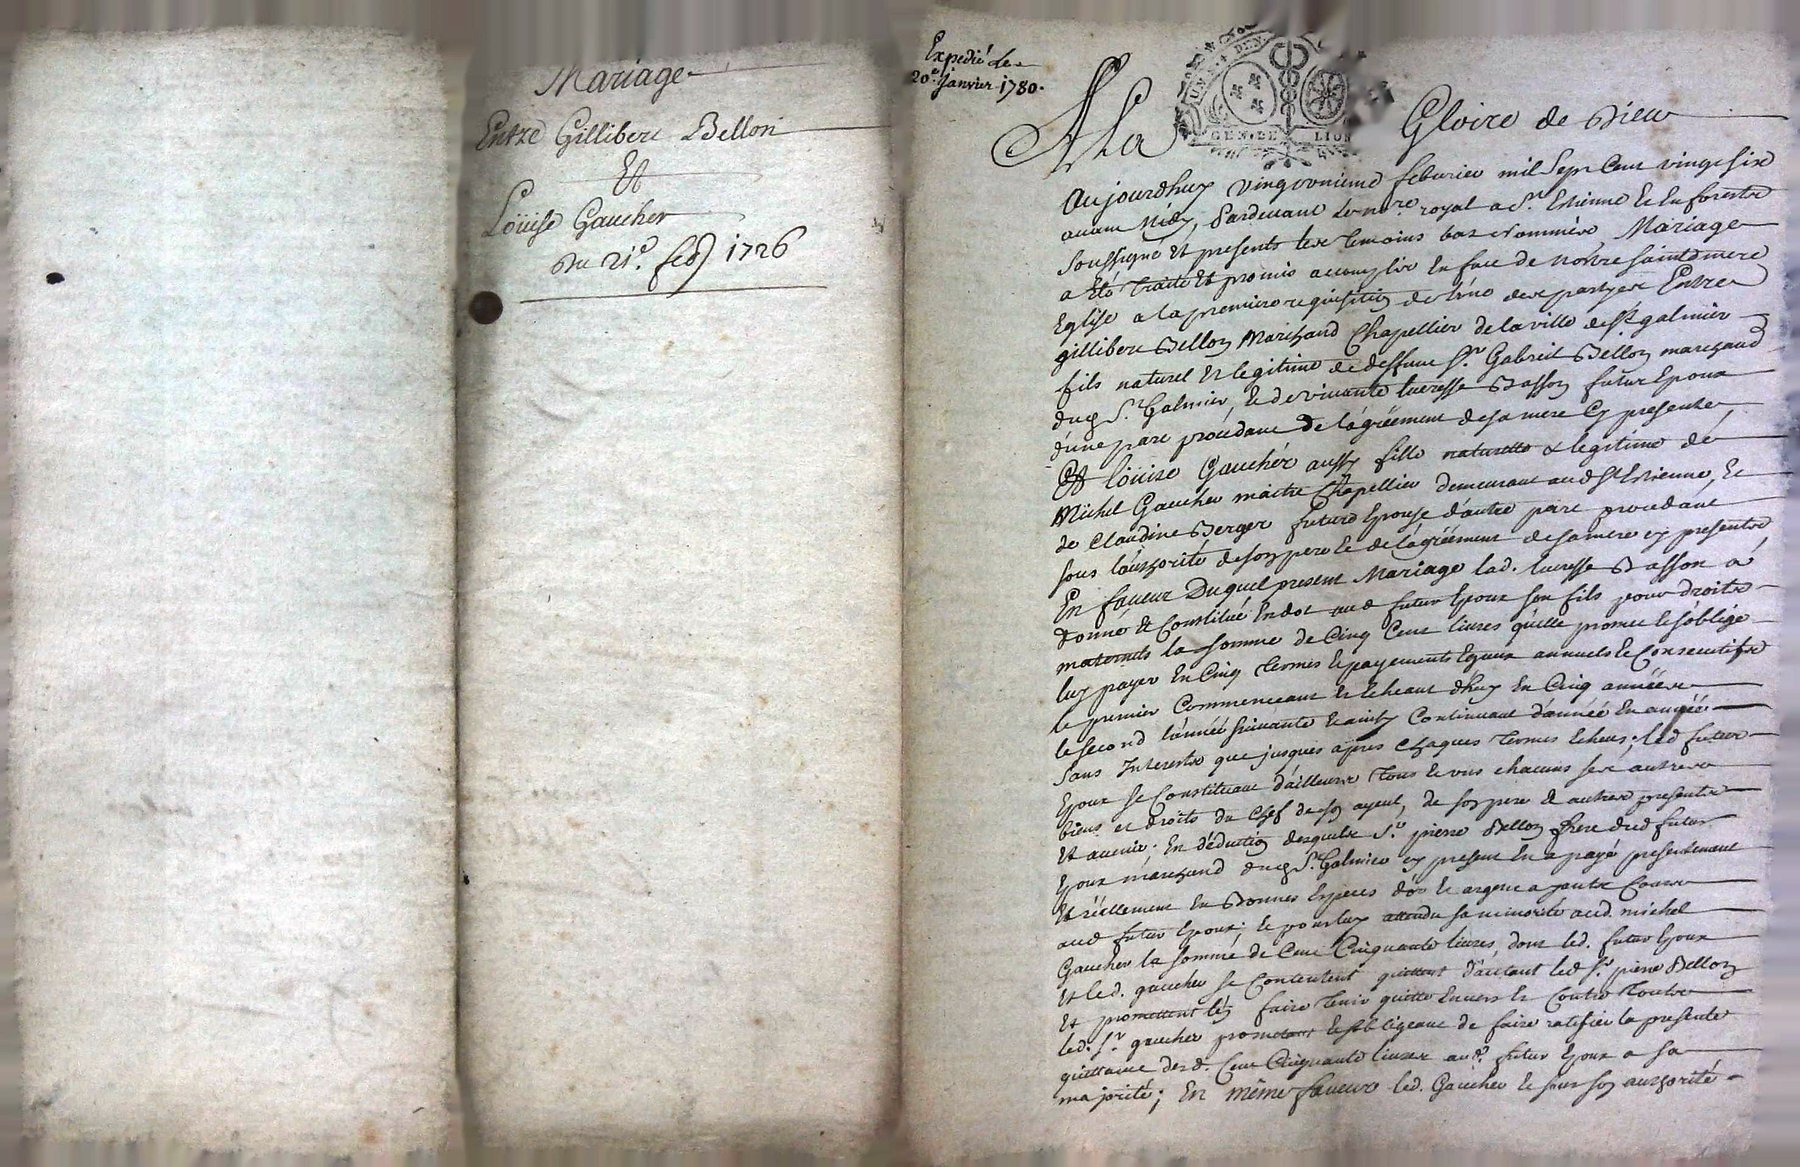 Mariage
Entre Gillibert Bellon
Et
Loüise Gaucher
du 21e. feb. 1726
Expedié Le
20e. Janvier 1780.
GEN. DE LION
A La Gloire de Dieu
Aujourdhuy vingt unieme febvrier mil Sept Cent vingt six
avant midy, Pardevant le nore. royal a St. Estienne Et En forestz
soussigné Et presents les temoins bas nommés Mariage
a Eté traité Et promis accomplir En face de nôtre sainte mere
Eglise a la premiere requisition de l'une des partyes Entre
gillibert Bellon Marchand Chapellier de la ville de St. galmier
fils naturel Et legitime de deffunt Sr. Gabriel Bellon marchand
dud St. Galmier, Et de vivante lucresse Basson futur Epoux
d'une part procédant de l'agréément de sa mere Cy presente,
Et loüise Gaucher aussy fille naturelle & legitime de
Michel Gaucher maitre Chapellier demeurant aud St Estienne, Et
de Claudine Berger future Epouse d'autre part procedant
sous l'authorité de son pere Et de l'agréément de sa mere cy presents,
En faveur Duquel present Mariage lad. lucresse Basson a
donné Et Constitué En dot aud futur Epoux son fils pour droits
maternels la somme de Cinq Cent livres qu'elle promet Et s'oblige
luy payer En Cinq termes Et payements Egaux annuels Et Consecutifs
le premier Commenceant Et Echeant d'huy En Cinq années
le second l'année suivante Et ainsy Continuant d'année En année
sans Interests que jusques apres chaques termes Echeus; led futur
Epoux se Constituant d'ailleurs tous Et uns chacuns ses autres
biens et droits du chef de son ayeul, de son pere & autres presents
Et avenir; En déduction desquels Sr. pierre Bellon frere dud futur
Epoux marchand dud St. Galmier cy present En a payé presentement
Et réellement En Bonnes Especes d'or Et argent a jante Cours
aud futur Epoux; Et pour luy attendu sa minorité aud. michel
Gaucher la somme de Cent Cinquante livres dont led. futur Epoux
Et led. gaucher se Contentent quittent d'autant led Sr. pierre Bellon
Et promettent l'en faire tenir quitte Envers Et Contre Toutes
led. Sr. gaucher promettant Et s'obligeant de faire ratifier la presente
quittance desd. Cent Cinquante livres aud. futur Epoux a sa
majorité; En même faveur led. Gaucher Et sous son authorité